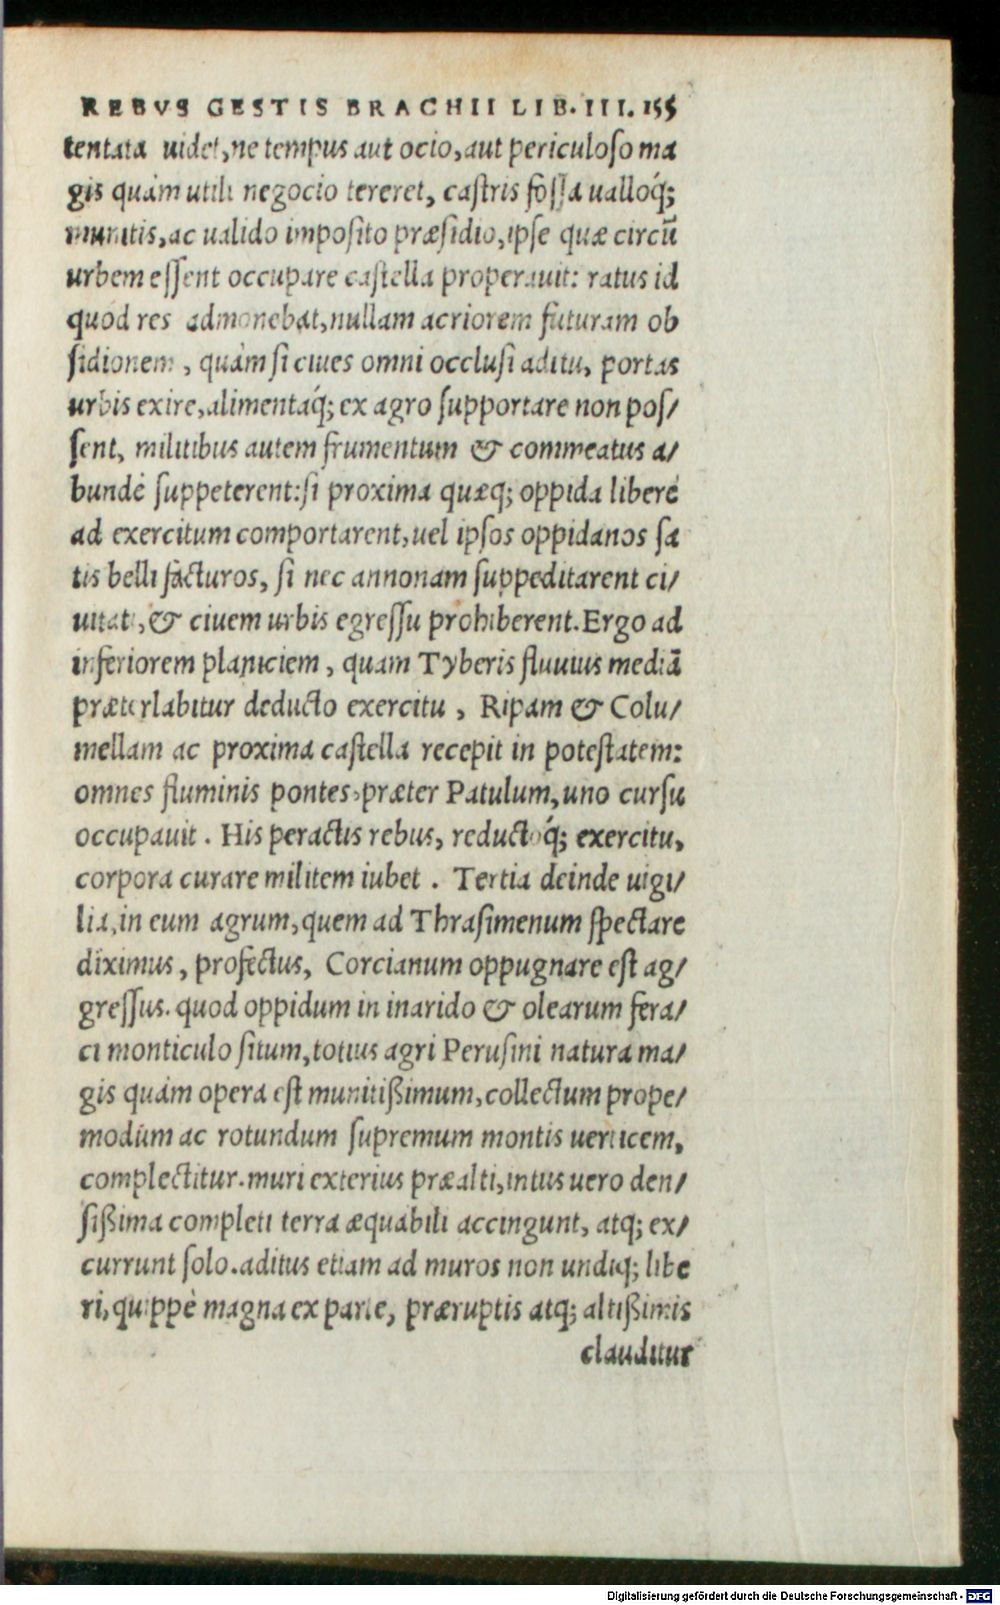 REBVS GESTIS BRACHII LIB. III. 155
tentata uidet, ne tempus aut ocio, aut periculoso ma
gis quàm utili negocio tereret, castris fossa ualloq́;
munitis, ac ualido imposito præsidio, ipse quæ circū
urbem essent occupare castella properauit: ratus id
quòd res admonebat, nullam acriorem futuram ob
sidionem, quàm si ciues omni occlusi aditu, portas
urbis exire, alimentaq́; ex agro supportare non pos/
sent, militibus autem frumentum & commeatus a/
bundè suppeterent: si proxima quæq; oppida liberè
ad exercitum comportarent, uel ipsos oppidanos sa
tis belli facturos, si nec annonam suppeditarent ci/
uitati, & ciuem urbis egressu prohiberent. Ergo ad
inferiorem planiciem, quam Tyberis fluuius mediā
præterlabitur deducto exercitu, Ripam & Colu/
mellam ac proxima castella recepit in potestatem:
omnes fluminis pontes, præter Patulum, uno cursu
occupauit. His peractis rebus, reductoq́; exercitu,
corpora curare militem iubet. Tertia deinde uigi/
lia, in eum agrum, quem ad Thrasimenum spectare
diximus, profectus, Corcianum oppugnare est ag/
gressus. quod oppidum in inarido & olearum fera/
ci monticulo situm, totius agri Perusini natura ma/
gis quàm opera est munitißimum, collectum prope/
modùm ac rotundum supremum montis uerticem,
complectitur. muri exterius præalti, intus uero den/
sißima completi terra æquabili accingunt, atq; ex/
currunt solo. aditus etiam ad muros non undiq; libe
ri, quippè magna ex parte, præruptis atq; altißimis
clauditur
Digitalisierung gefördert durch die Deutsche Forschungsgemeinschaft - DFG